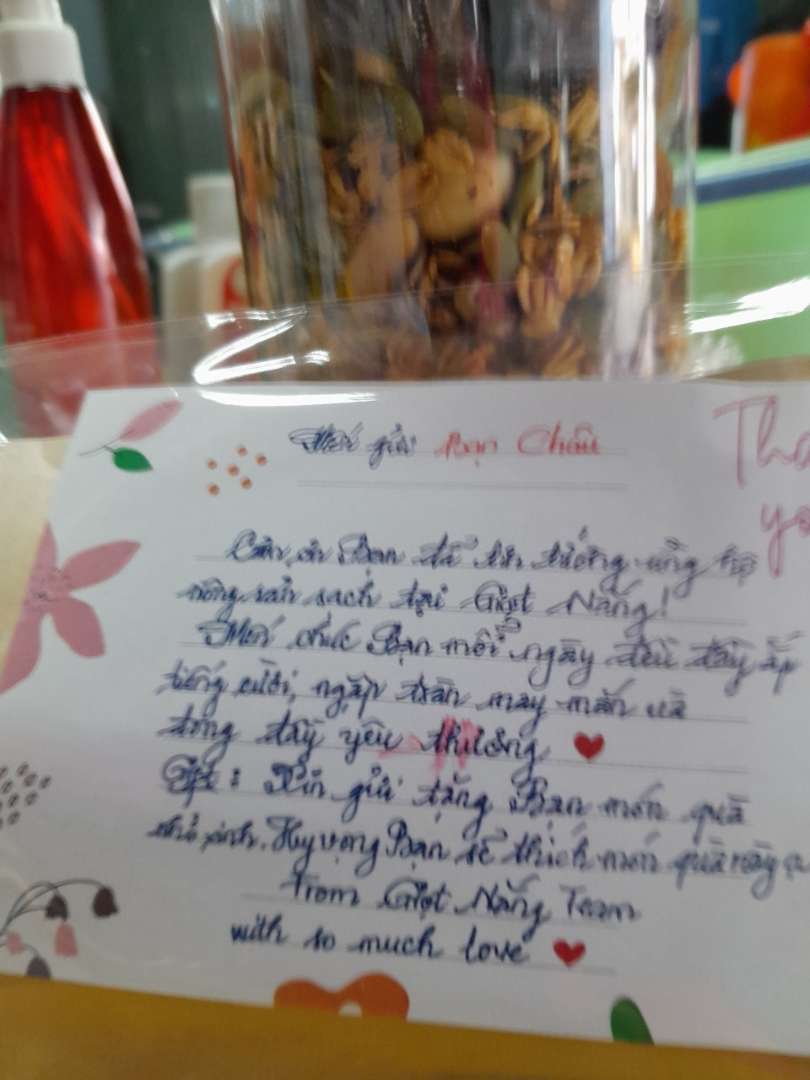 Mến gửi Bạn Châu
Tha
yo
Cảm ơn Bạn đã tin tưởng ủng hộ
nông sản sạch tại Giọt Nắng!
Mến chúc Bạn mỗi ngày đều đầy ắp
tiếng cười, ngập tràn may mắn và
tràn đầy yêu thương
Xin gửi tặng Bạn món quà
nhỏ xinh. Hy vọng Bạn sẽ thích món quà này ạ
From Giọt Nắng Team
with so much love